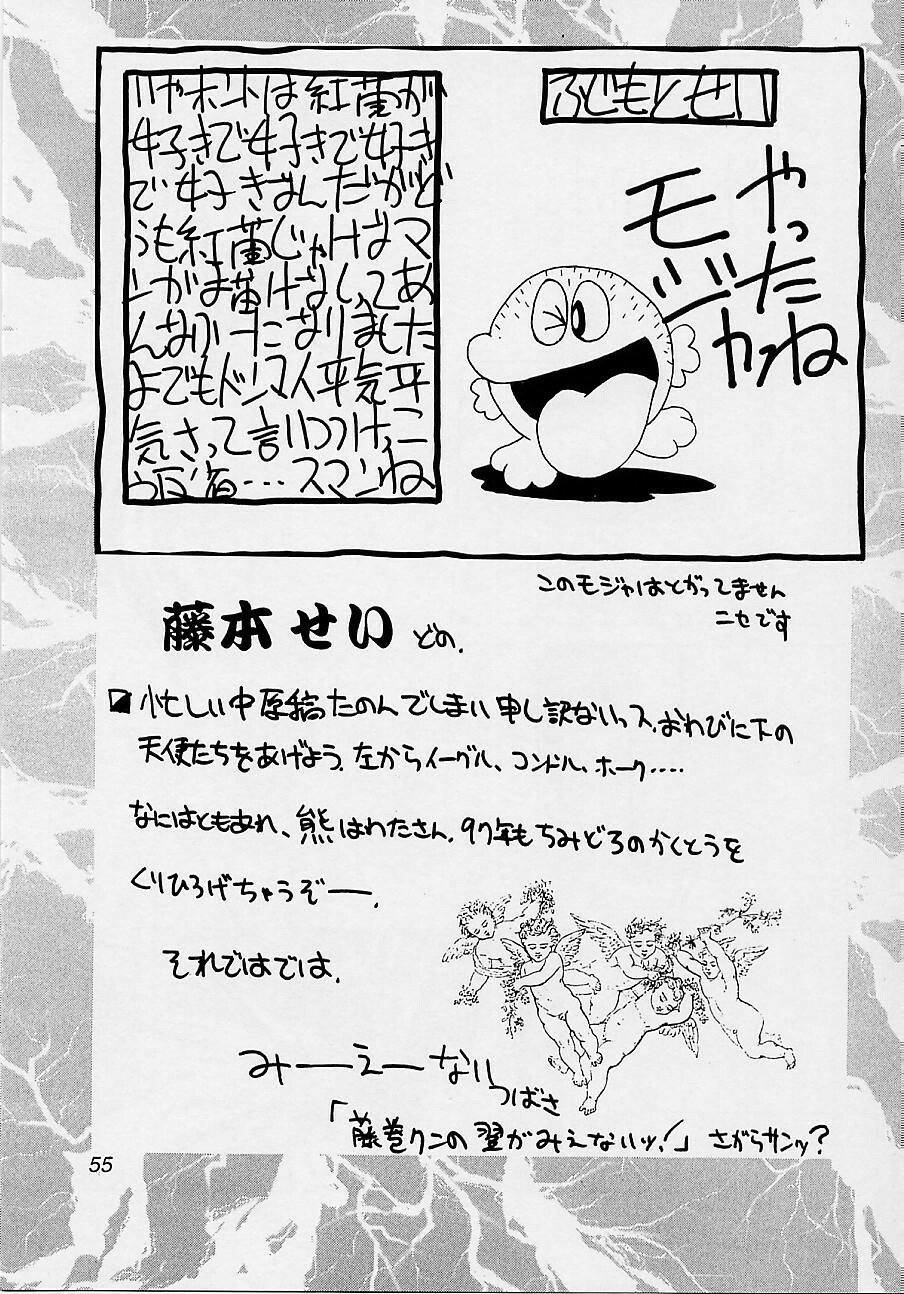 ふじもとせい
やった
ね
モジャ
いやホントは紅蘭が
好きで好きで好き
で好きなんだがど
うも紅蘭じゃげはマ
ンガお蘭げなしってあ
んなかーたになりました
よでもドンマイ平気平
気さって言いつつけっこ
う反省…スマンね
このモジャはとがってません
ニセです
藤本せいどの.
忙しい中原稿たのんでしまい申し訳ないっス.おわびに下の
天使たちをあげよう.左からイーグル、コンドル、ホーク‥‥
なにはともあれ、熊はわたさん.97年もちみどろのかくとうを
くりひろげちゃうぞ――.
それではでは.
みーえーない
つばさ
「藤巻クンの翼がみえないッ!」さがらサンッ?
55